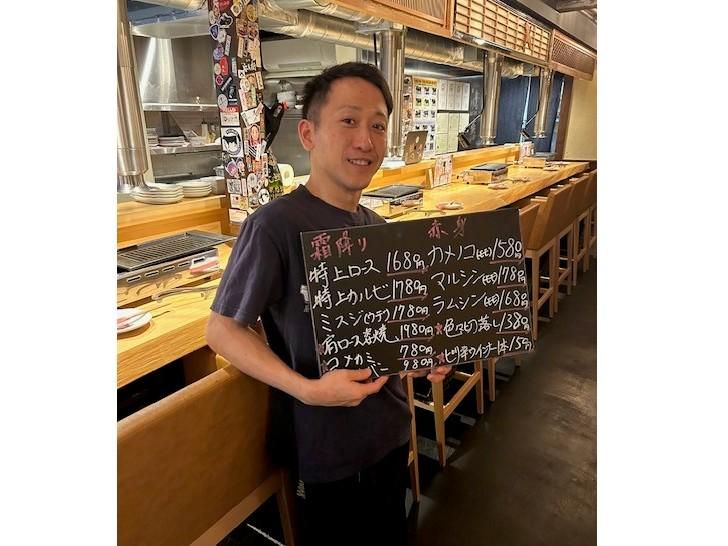 霜降り
特上ロース 1680円
特上カルビ 1780円
ミスジ(ウデ) 1780円
肩ロース炭焼 1980円
コメカミ 780円
980円
赤身
カメノコ(モモ) 1580円
マルシン(モモ) 1780
ラムシン(モモ) 1680
落し 1380円
ウインナー1本 150円